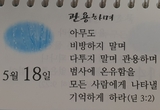 관용하며
아무도
비방하지 말며
다투지 말며 관용하며
범사에 온유함을
모든 사람에게 나타낼
기억하게 하라(딛 3:2)
5월 18일